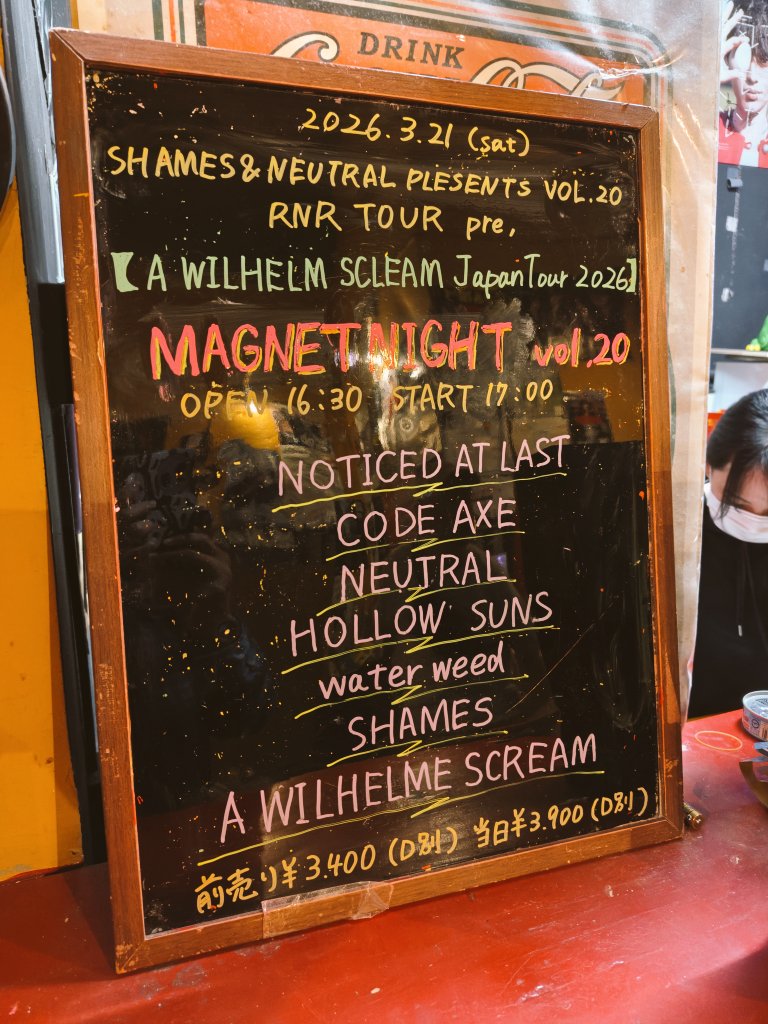 DRINK
2026.3.21 (sat)
SHAMES & NEUTRAL PLESENTS VOL.20
RNR TOUR pre,
【A WILHELM SCLEAM Japan Tour 2026】
MAGNET NIGHT vol.20
OPEN 16:30 START 17:00
NOTICED AT LAST
CODE AXE
NEUTRAL
HOLLOW SUNS
water weed
SHAMES
A WILHELME SCREAM
前売り¥3.400(D別) 当日¥3.900(D別)